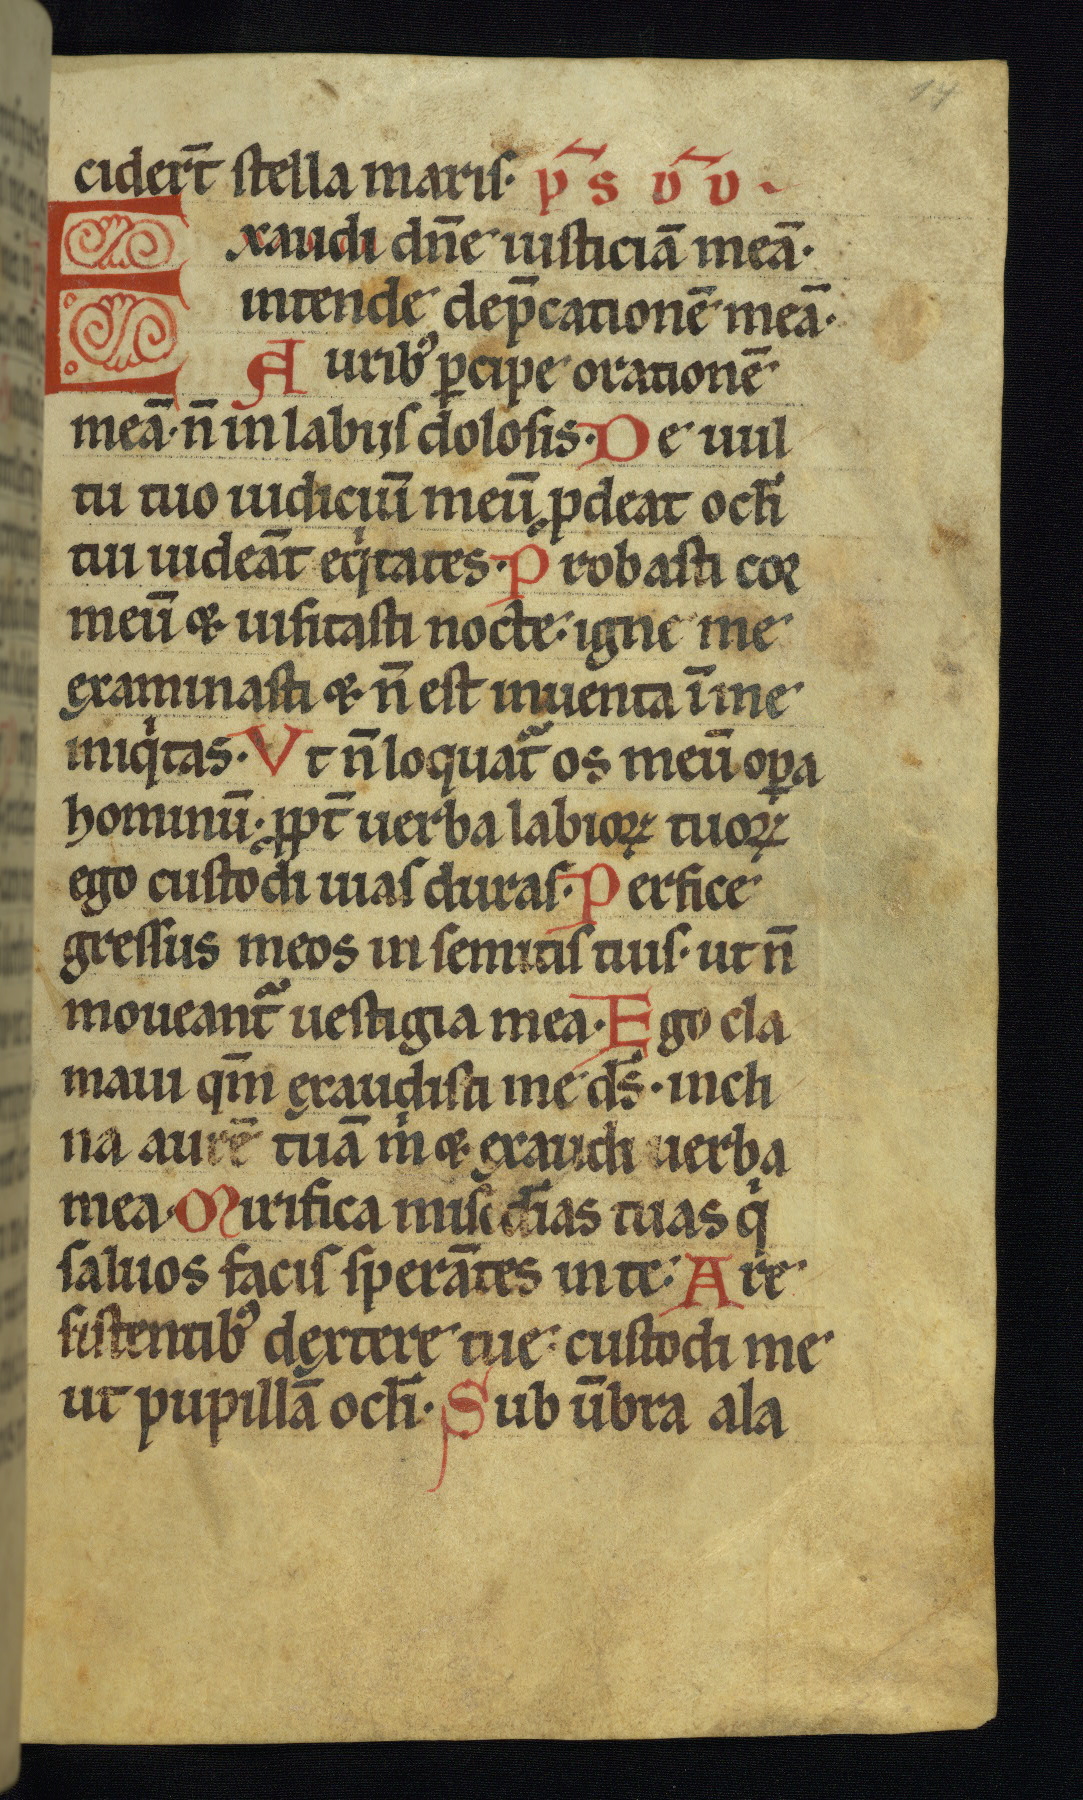 17
ciderт̄ stella maris· p̄s v̄v·
Exaudi dn̄e iusticiā meā·
intende dep̄cationē meā·
Auribꝰ ꝑcipe orationē
meā· n̄ in labijs dolosis· De uul
tu tuo iudiciū meū ꝓdeat ocłi
tui uideāt eqͥtates· Probasti cor
meū & uisitasti nocte· igne me
examinasti & n̄ est inuenta ī me
iniqͥtas· Vt n̄ loquat᷑ os meū oꝑa
hominū· ꝓpt̄ uerba labioꝝ tuoꝝ
ego custodi uias duras· Perfice
gressus meos in semitis tuis· ut n̄
moueant᷑ uestigia mea· Ego cla
maui qm̄ exaudisti me ds̄· incli
na aurē tuā mͥ & exaudi uerba
mea· Mirifica misc̄dias tuas qͥ
saluos facis sperātes in te· A re
sistentibꝰ dextere tue· custodi me
ut pupillā ocłi· Sub ūbra ala